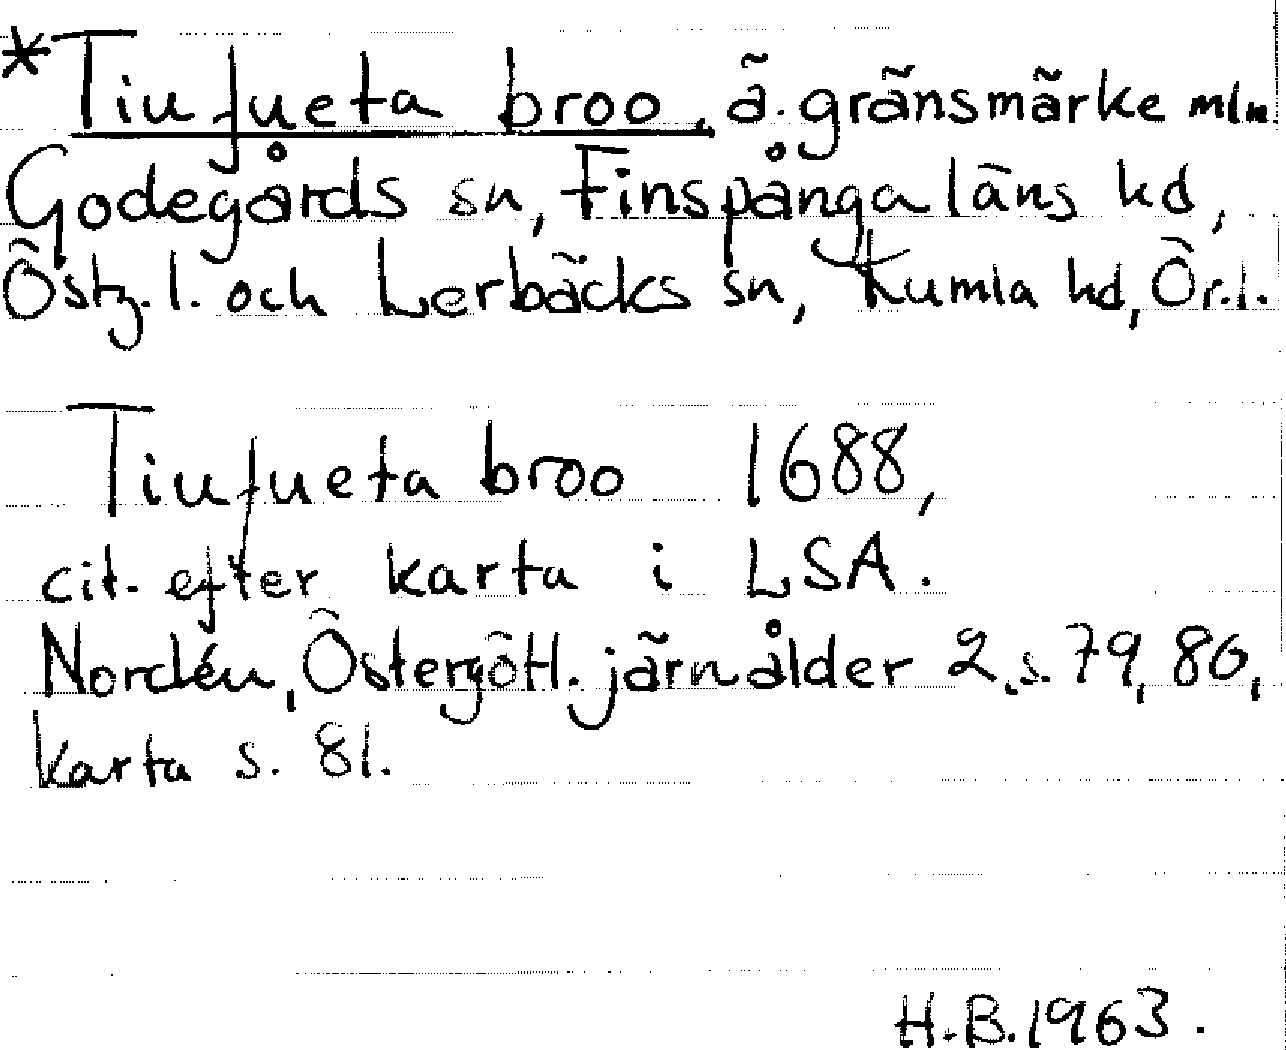 *Tiufueta broo, ä. gränsmärke mln
Godegårds sn, Finspånga läns hd,
Östg. l. och Lerbäcks sn, Kumla hd, Ör. l.
Tiufueta broo 1688,
cit. efter karta i LSA.
Nordén, Östergötl. järnålder 2, s. 79, 80,
karta s. 81.
H.B. 1963.